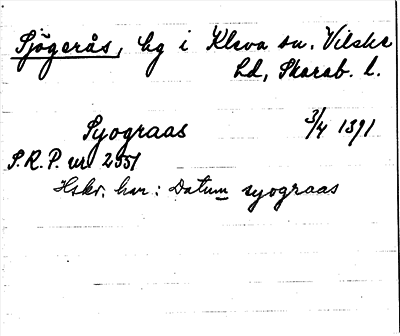 Sjögerås, by i Kleva sn. Vilske
hd, Skarab. l.
Syograas 3/4 1391
S.R.P. nr 2551
Hskr. har: Datum syograas